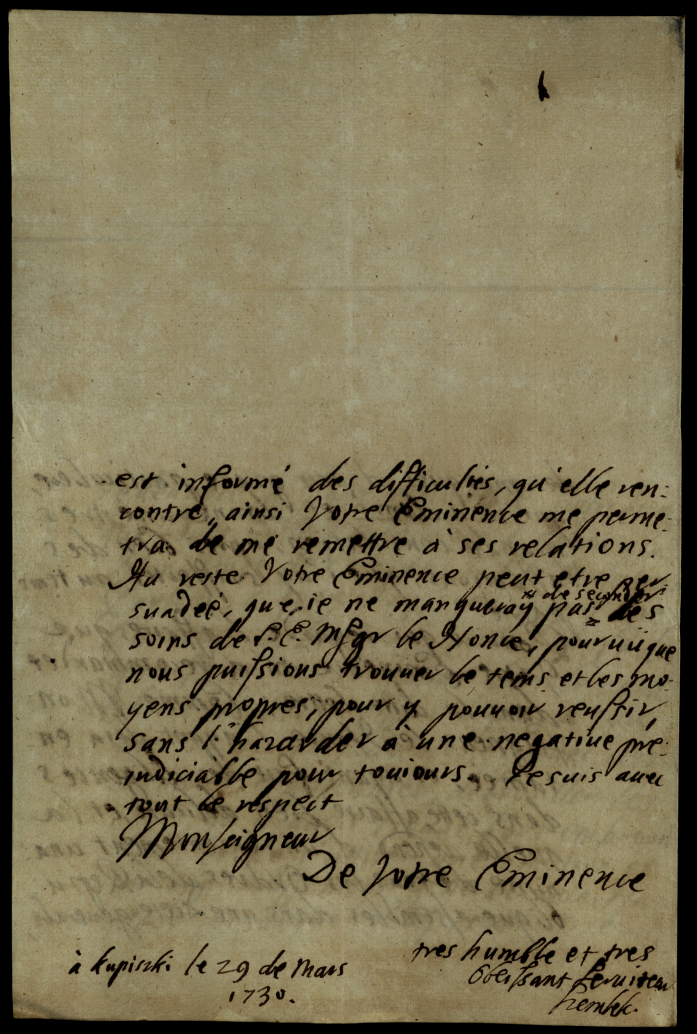 est informé des difficultés, qu'elle ren:
contre, ainsi Votre Eminence me perme:
tra de me remettre à ses relations.
Au reste Votre Eminence peut etre per:
suadeé, que ie ne manqueray pas de seconder les
soins de S. E. Msgr le Nonce, pourvuque
nous puissions trouver le tems et les mo:
yens propres, pour y pouvoir reussir,
sans l'hazarder à une negative pre:
iudiciable pour touiours. Je suis avec
tout le respect
Monseigneur
De Votre Eminence
tres humble et tres
Obeissant Serviteur
Szembek.
à kupiszki le 29 de Mars
1730.